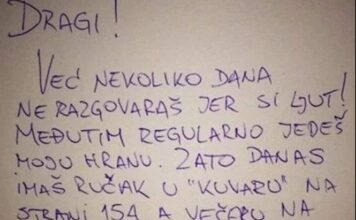 DRAGI!
VEĆ NEKOLIKO DANA
NE RAZGOVARAŠ JER SI LJUT!
MEĐUTIM REGULARNO JEDEŠ
MOJU HRANU. ZATO DANAS
IMAŠ RUČAK U "KUVARU" NA
STRANI 154 A VEČERU NA